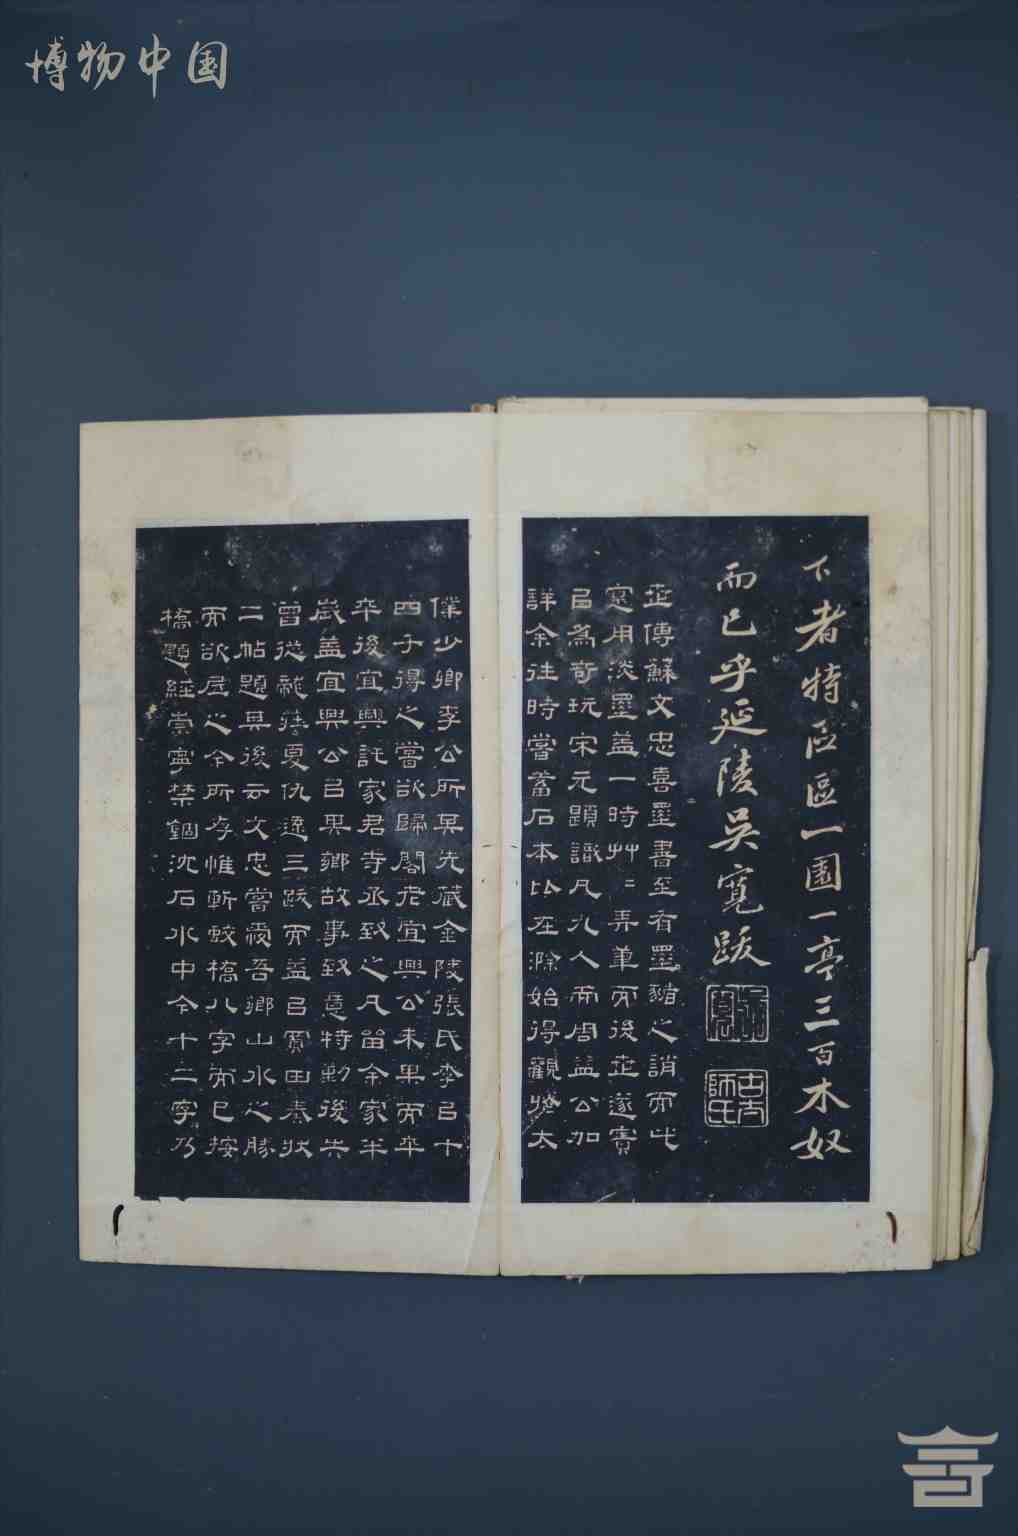 博物中国
下者特區區一園一亭三百木奴
而已乎延陵吳寬跋
吳寬
世傳蘇文忠喜墨書至有墨豬之誚而此
寔用淡墨蓋一時艸〻弄筆而後世遂寶
㠯為奇玩宋元題識凡九人而周益公加
詳余往時嘗蓄石本比在滁始得觀於太
僕少卿李公所其先藏金陵張氏李㠯十
四千得之嘗欲歸閣老宜興公未果而卒
卒後宜興託家君寺丞致之凡留余家半
歲蓋宜興公㠯其鄉故事致意特勤後失
曾從龍莊夏仇遠三跋而益㠯買田奏狀
二帖題其後云文忠嘗愛吾鄉山水之勝
而欲居之今所存惟斬蛟橋八字而已按
橋題經崇寧禁錮沈石水中今十二字乃